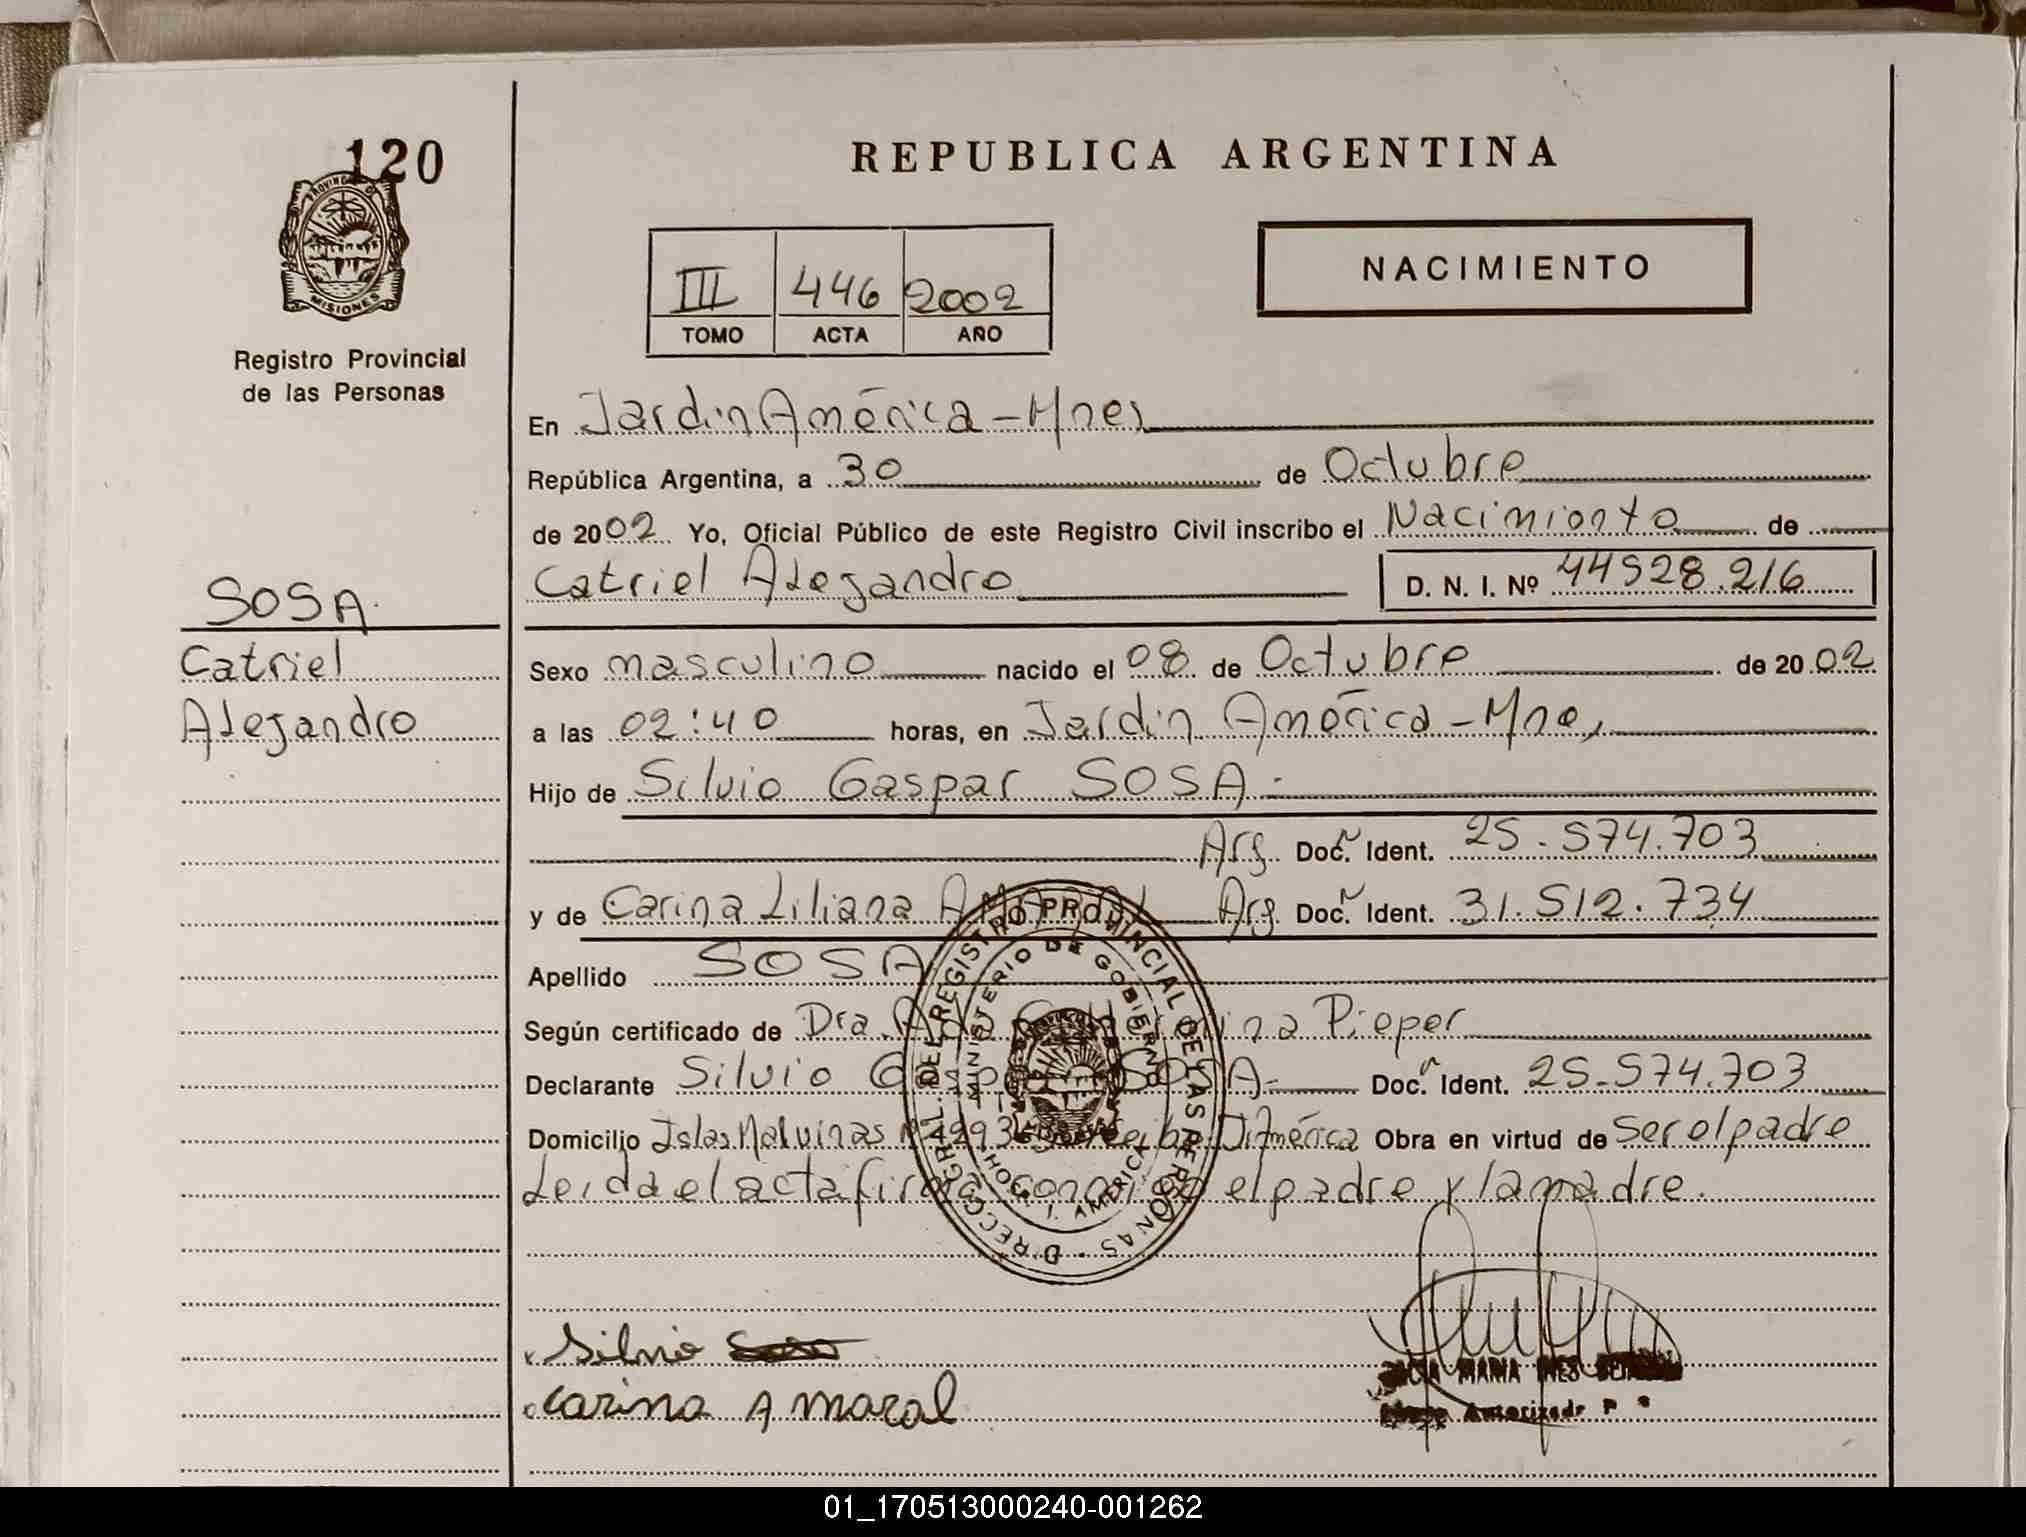 120
PROVINCIA D
MISIONES
Registro Provincial
de las Personas
SOSA.
Catriel
Alejandro
REPUBLICA ARGENTINA
III 446 2002
TOMO ACTA AÑO
NACIMIENTO
En Jardin América - Mnes
República Argentina, a 30 de Octubre
de 2002 Yo, Oficial Público de este Registro Civil inscribo el Nacimiento de
Catriel Alejandro D. N. I. Nº 44528.216
Sexo masculino nacido el 08 de Octubre de 2002
a las 02:40 horas, en Jardin América - Mnes
Hijo de Silvio Gaspar SOSA -
Arg Doc. Ident. 25.574.703
y de Carina Liliana AMARAL Arg Doc. Ident. 31.512.734
Apellido SOSA
Según certificado de Dra. Pieper
Declarante Silvio Gaspar SOSA - Doc. Ident. 25.574.703
Domicilio Islas Malvinas Nº 4993 J. América Obra en virtud de ser el padre
Leida el acta firma conmigo el padre y la madre.
DIRECC. GRAL. DEL REGISTRO PROVINCIAL DE LAS PERSONAS
MINISTERIO DE GOBIERNO
J. AMERICA
Silvio
Carina Amaral
MARIA INES
Autorizado
01_170513000240-001262